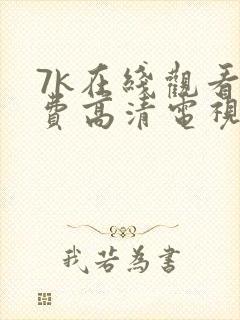 7K在綫觀看
費高清電視
我若為書